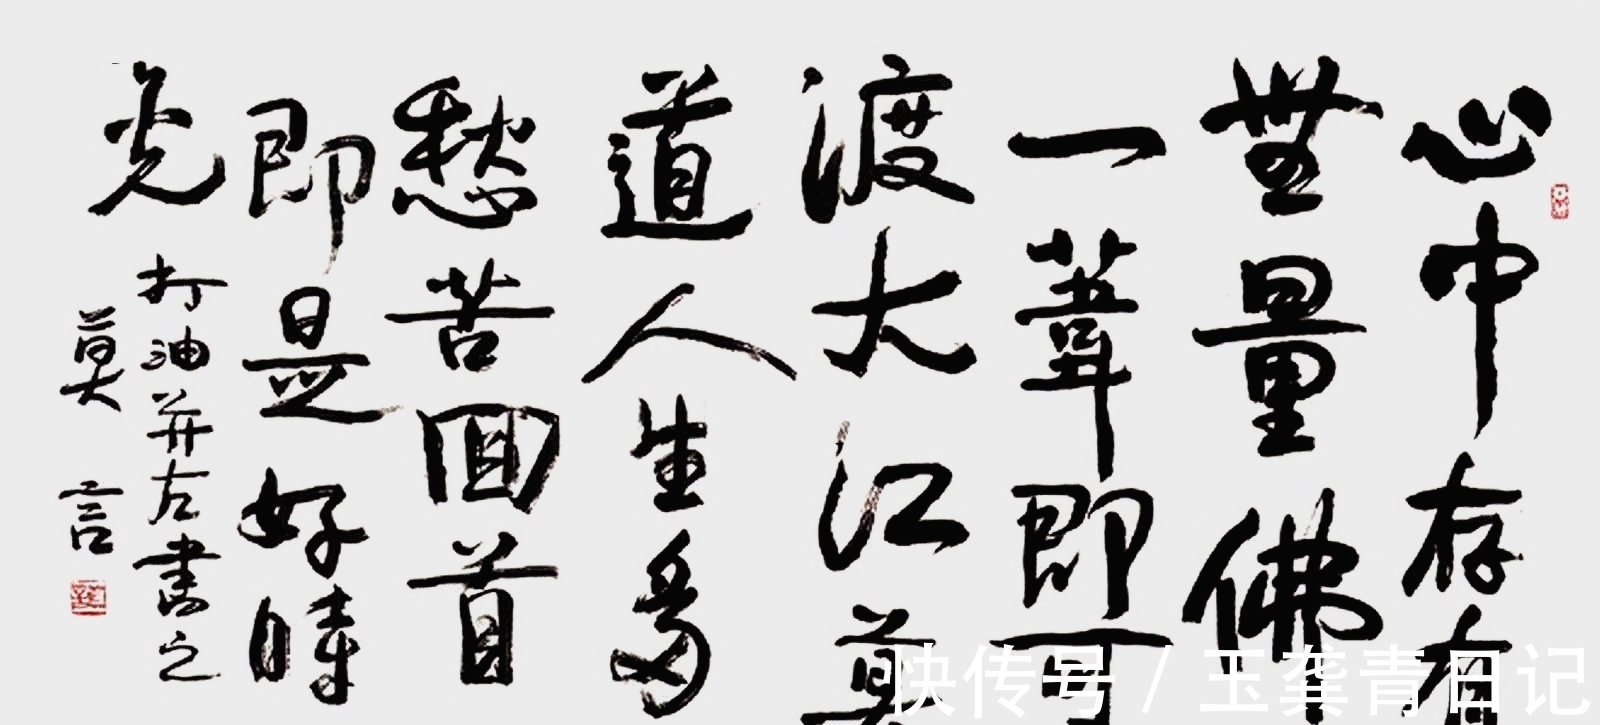 心中存有
無量佛
一葦即可
渡大江莫
道人生多
愁苦回首
即是好晴
光
打油并左書之
莫言
快传号 / 玉龚青日记